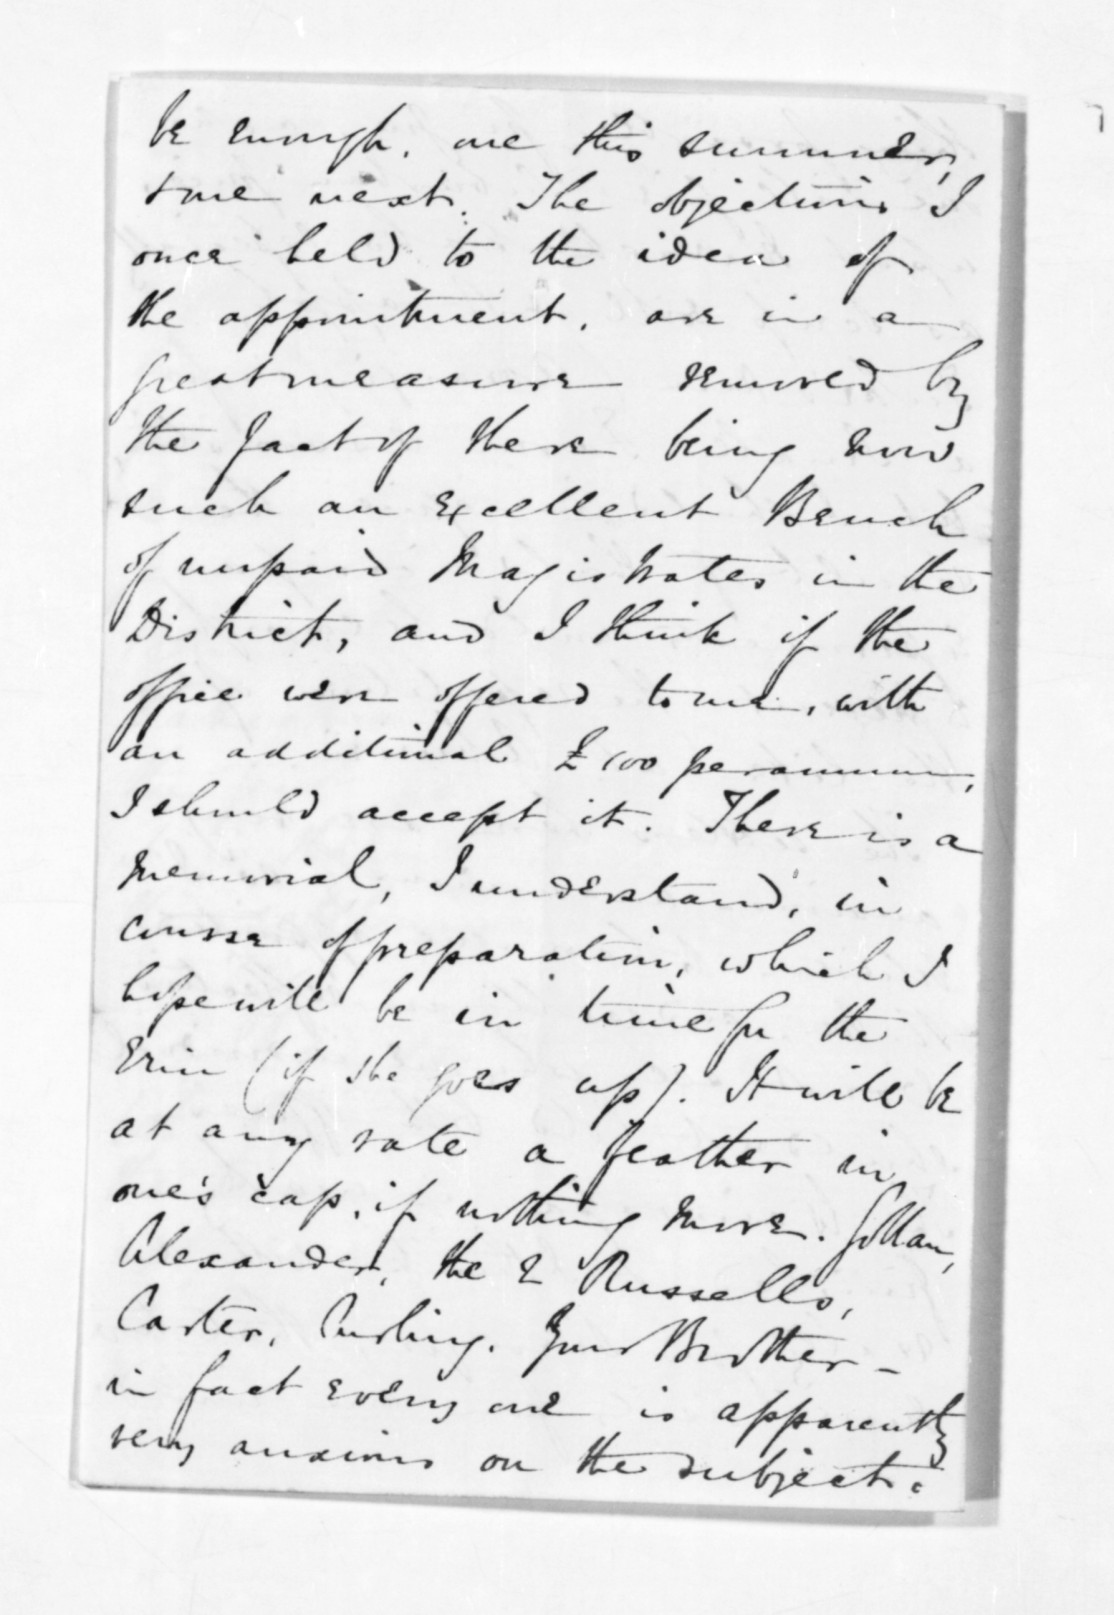 be enough, one this summer,
& one next. The objections I
once held to the idea of
the appointment, are in a
great measure removed by
the fact of there being now
such an excellent Bench
of unpaid Magistrates in the
District, and I think if the
office were offered to me, with
an additional £100 per annum,
I should accept it. There is a
Memorial, I understand, in
course of preparation, which I
hope will be in time for the
Erin (if she goes up). It will be
at any rate a feather in
one's cap, if nothing more. Gollan,
Alexander, the 2 Russells,
Carter, Curling, Your Brother -
in fact every one is apparently
very anxious on the subject.